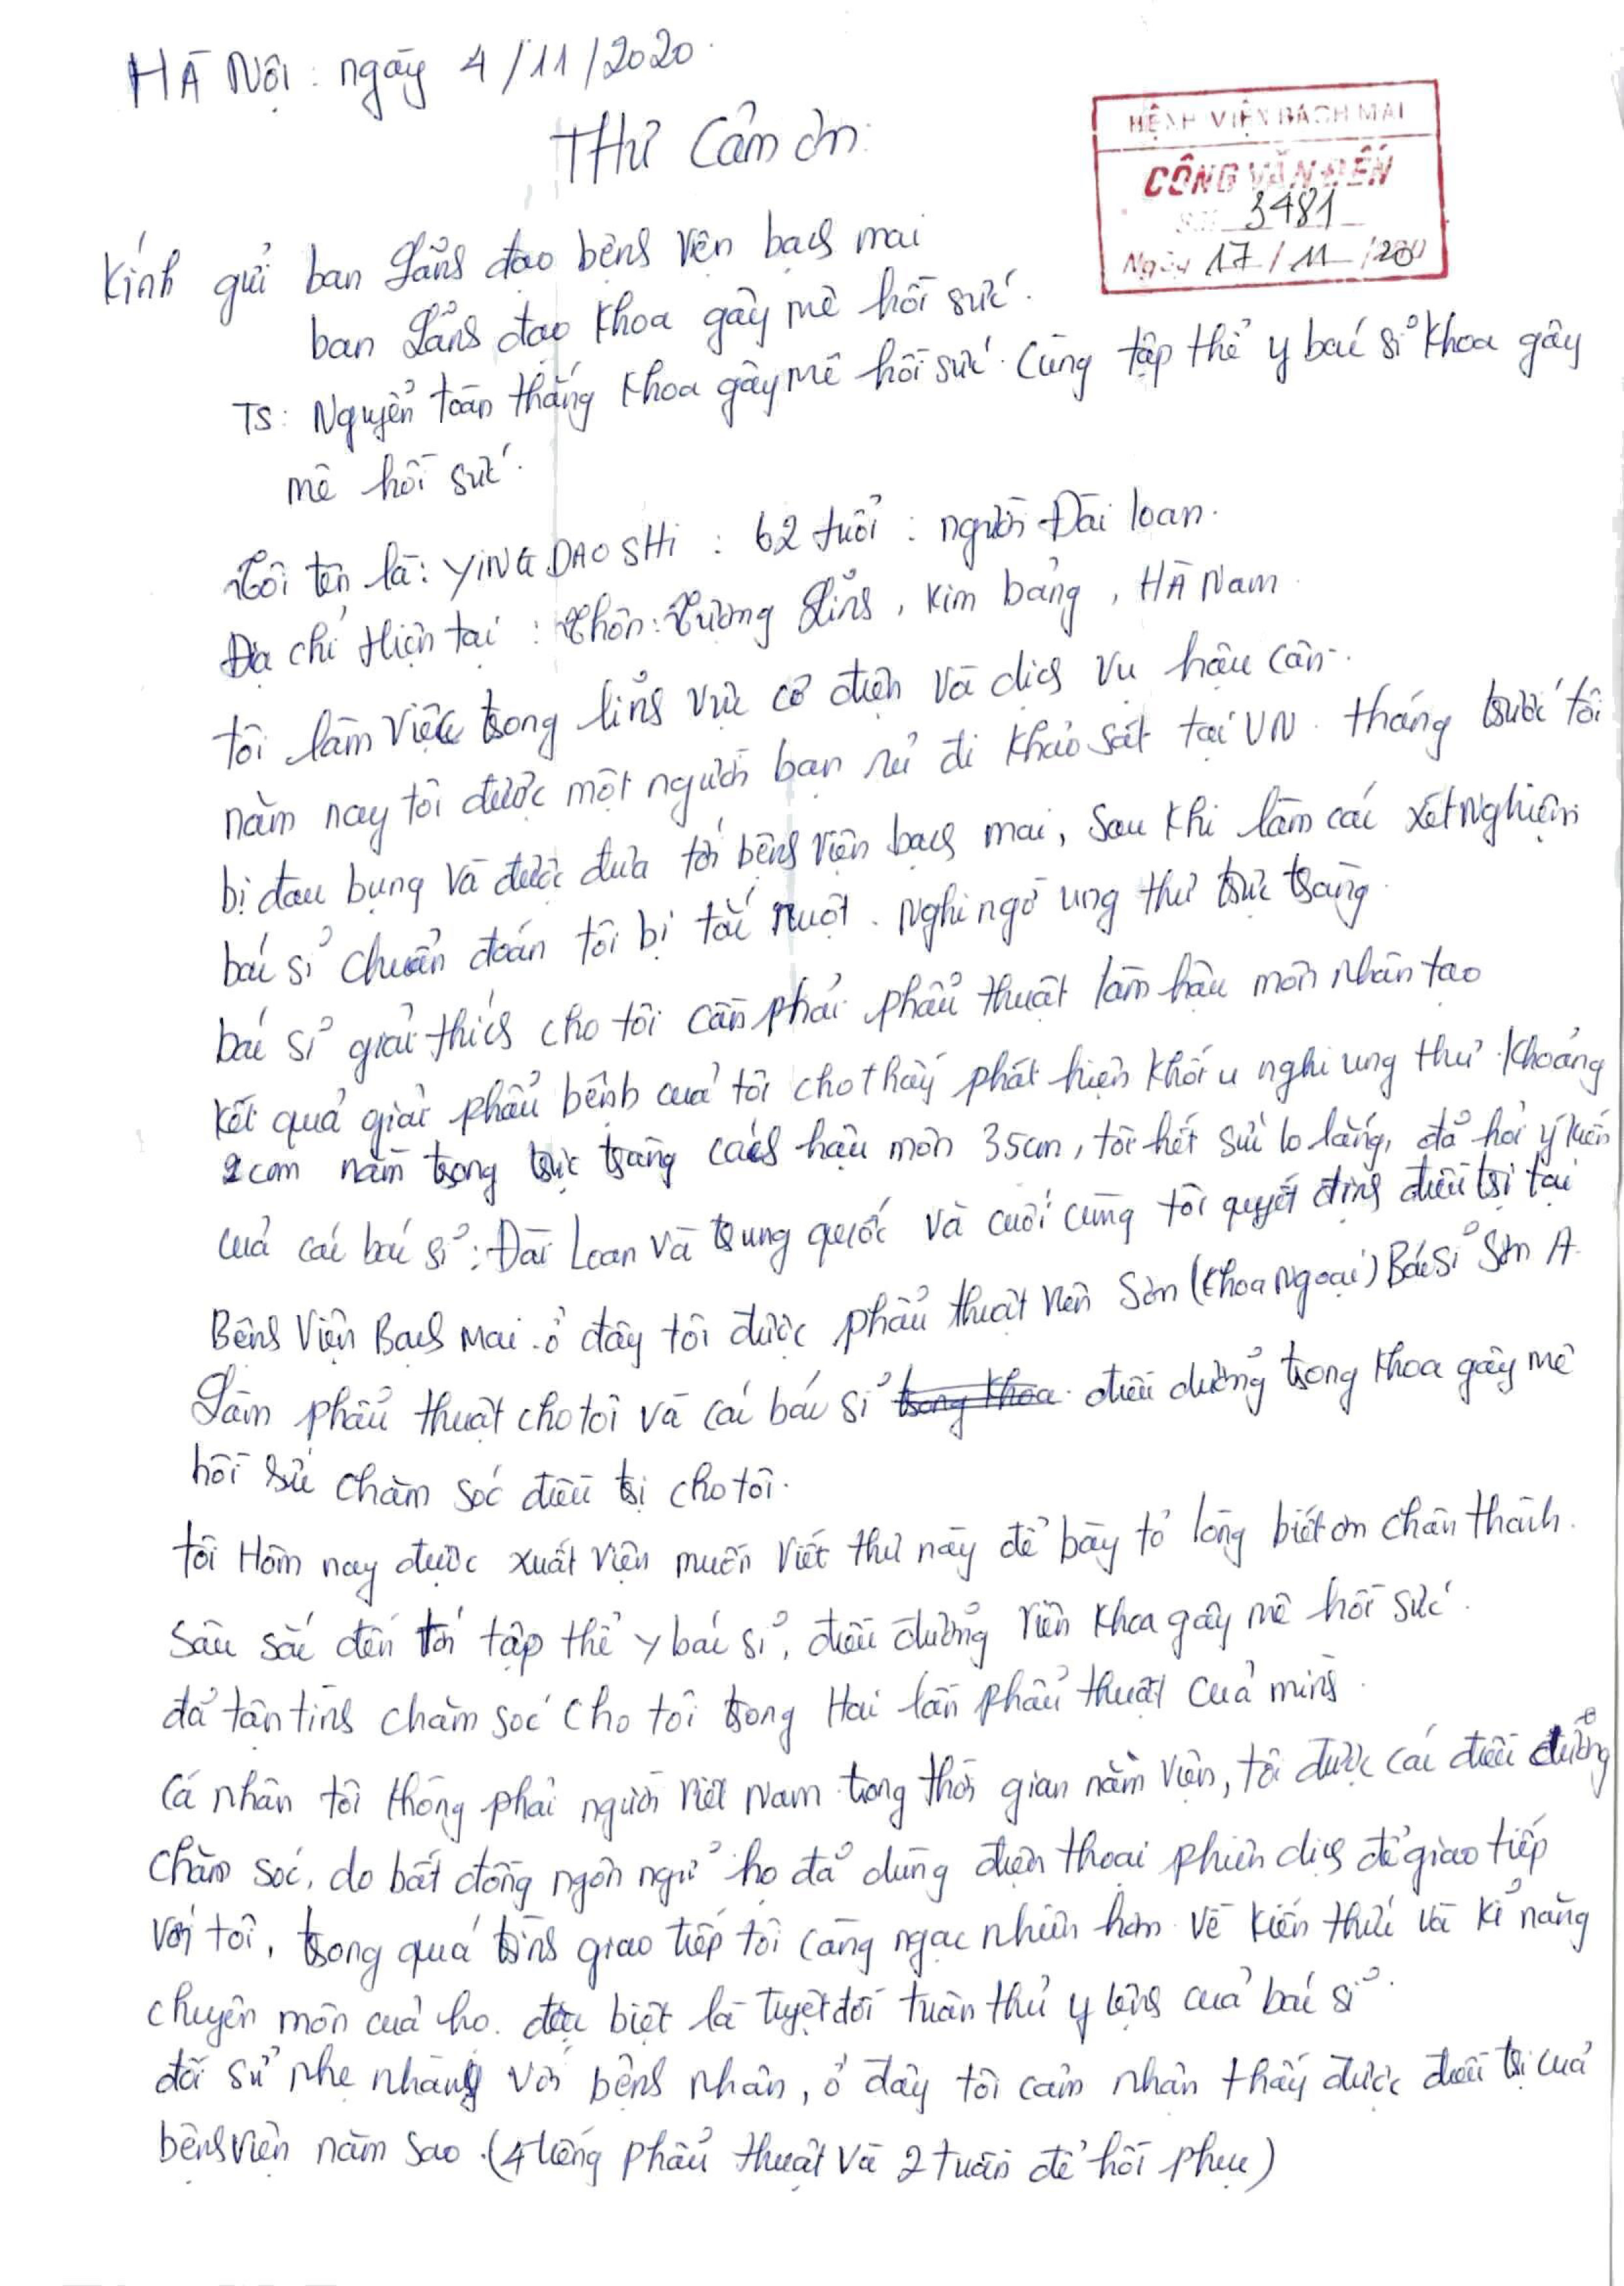 HÀ Nội : ngày 4/11/2020.
THƯ Cảm ơn:
BỆNH VIỆN BẠCH MAI
CÔNG VĂN ĐẾN
3481
Ngày 17/11/
Kính gửi ban Lảnh đạo bệnh viện bạch mai
ban Lảnh đạo Khoa gây mê hồi sức.
TS: Nguyển toàn thắng khoa gây mê hồi sức. Cùng tập thể y bác sỉ khoa gây
mê hồi sức.
Tôi tên là: YING DAO SHI : 62 tuổi : người Đài loan.
Địa chỉ Hiện tại : Thôn: Tượng Lỉnh, Kim bảng, HÀ Nam.
tôi làm việc trong lỉnh vực cơ điện và dịch vụ hậu cần.
năm nay tôi được một người bạn rủ đi khảo sát tại VN. tháng trước tôi
bị đau bụng và được đưa tới bệnh viện bạch mai, sau khi làm các xét Nghiệm
bác sỉ chuẩn đoán tôi bị tắc ruột. nghi ngờ ung thư trực tràng.
bác sỉ giải thích cho tôi cần phải phẩu thuật làm hậu môn nhân tạo
kết quả giải phẩu bệnh của tôi cho thấy phát hiện khối u nghi ung thư khoảng
2 com nằm trong trực tràng cách hậu môn 35cm, tôi hết sức lo lắng, đả hỏi ý kiến
của các bác sỉ: Đài Loan và trung quốc và cuối cùng tôi quyết định điều trị tại
Bệnh Viện Bạch Mai. ở đây tôi được phẩu thuật Sơn (khoa Ngoại) Bác Sỉ Sơn A.
Làm phẩu thuật cho tôi và các bác sỉ trong khoa. điều dưởng trong khoa gây mê
hồi sức chăm sóc điều trị cho tôi.
tôi Hôm nay được xuất viện muốn viết thư này để bày tỏ lòng biết ơn chân thành.
sâu sắc đến tới tập thể y bác sỉ, điều dưởng viên khoa gây mê hồi sức.
đả tận tình chăm sóc cho tôi trong Hai lần phẩu thuật của mình.
Cá nhân tôi không phải người việt Nam trong thời gian nằm viện, tôi được các điều dưởng
chăm sóc, do bất đồng ngôn ngử họ đả dùng điện thoại phiên dịch để giao tiếp
với tôi, trong quá trình giao tiếp tôi càng ngạc nhiên hơn về kiến thức và kỉ năng
chuyên môn của họ. đặc biệt là tuyệt đối tuân thủ y lệnh của bác sỉ.
đối sử nhẹ nhàng với bệnh nhân, ở đây tôi cảm nhận thấy được điều trị của
bệnh viện năm sao. (4 tiếng phẩu thuật và 2 tuần để hồi phục)